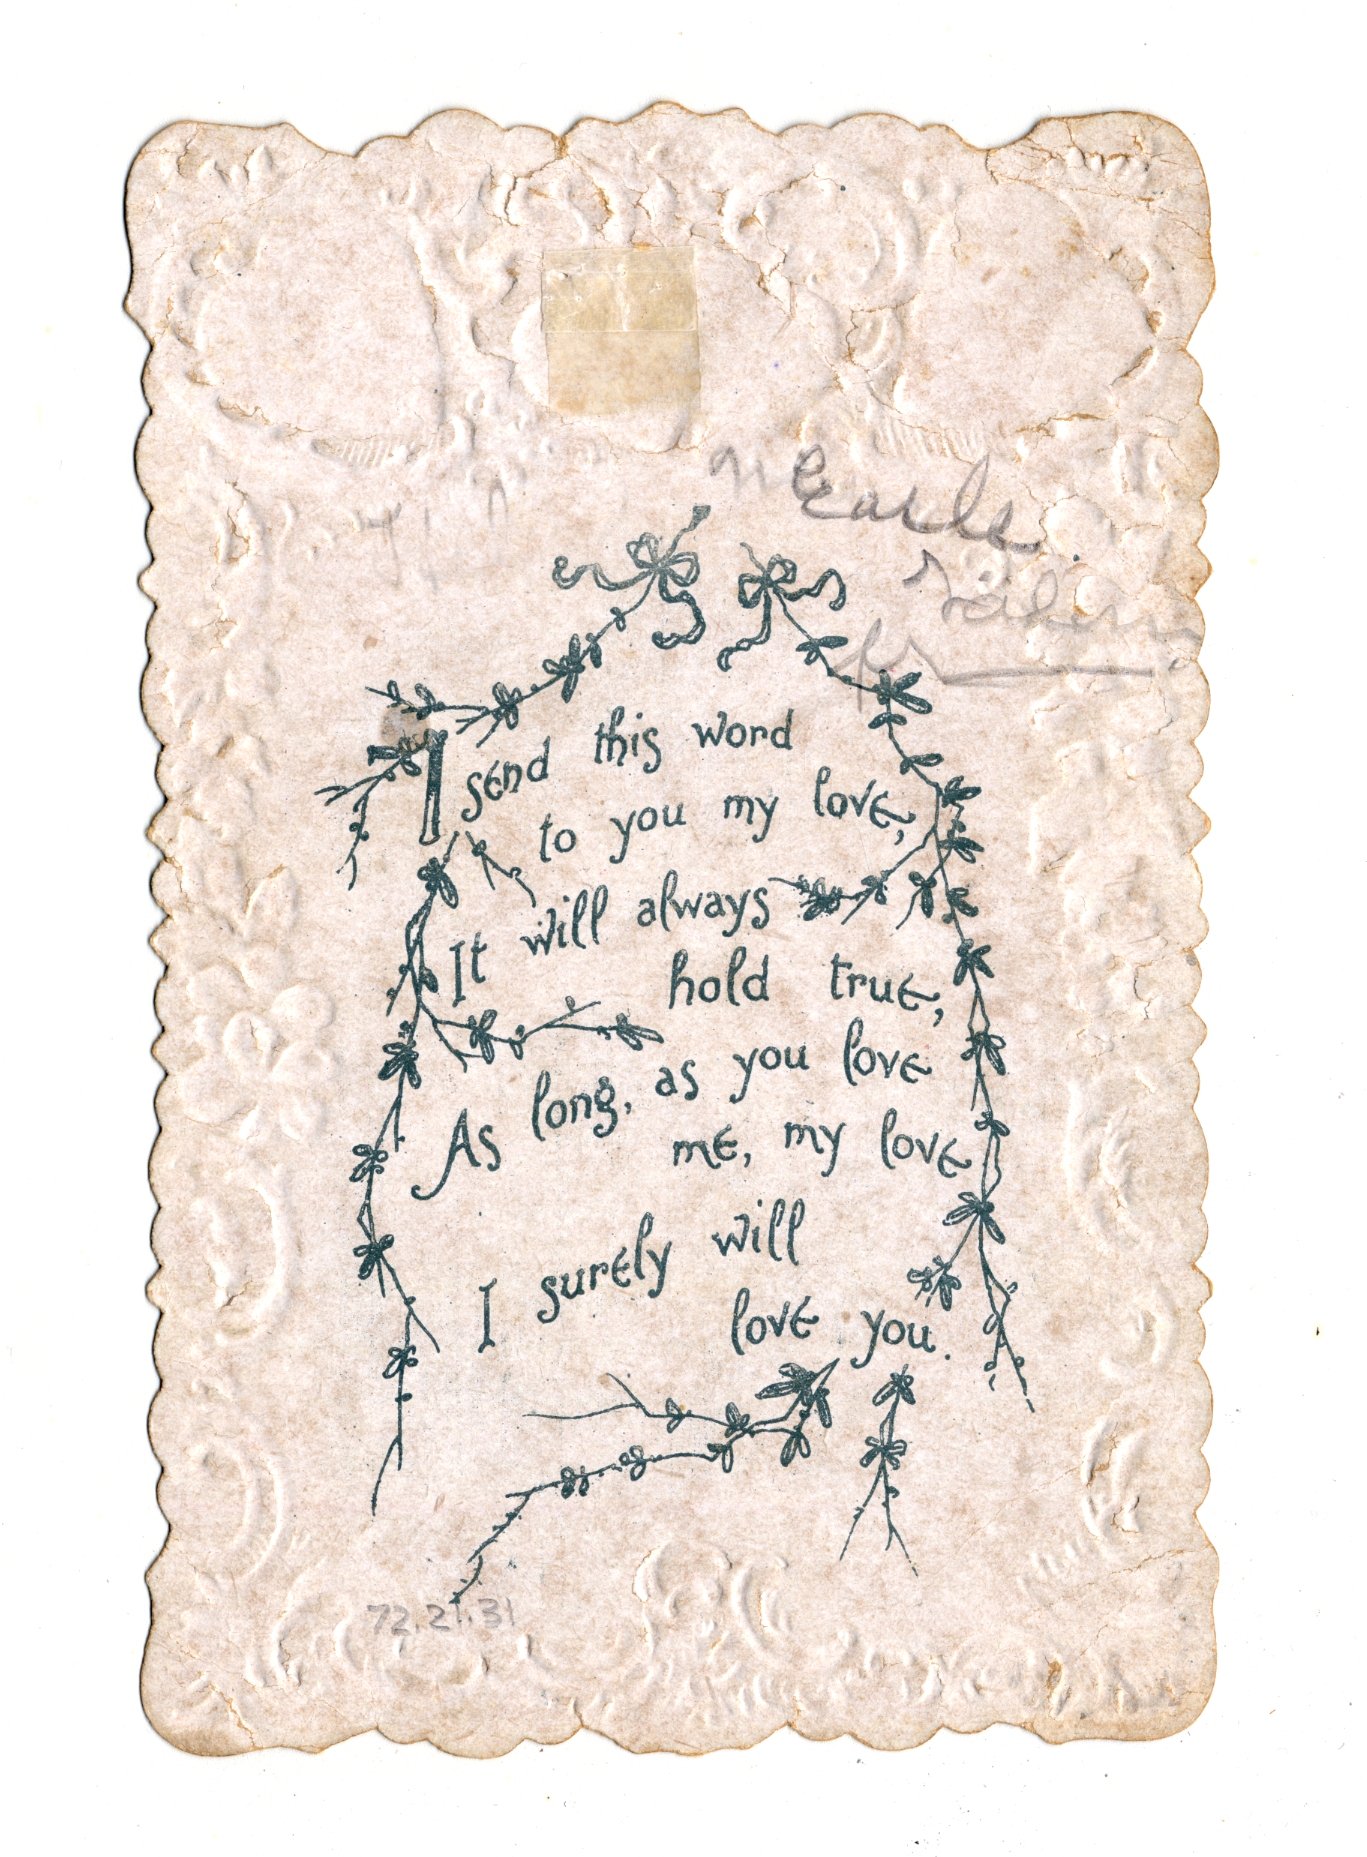 Earle
I send this word
to you my love,
It will always
hold true,
As long, as you love
me, my love
I surely will
love you.
72.21.31